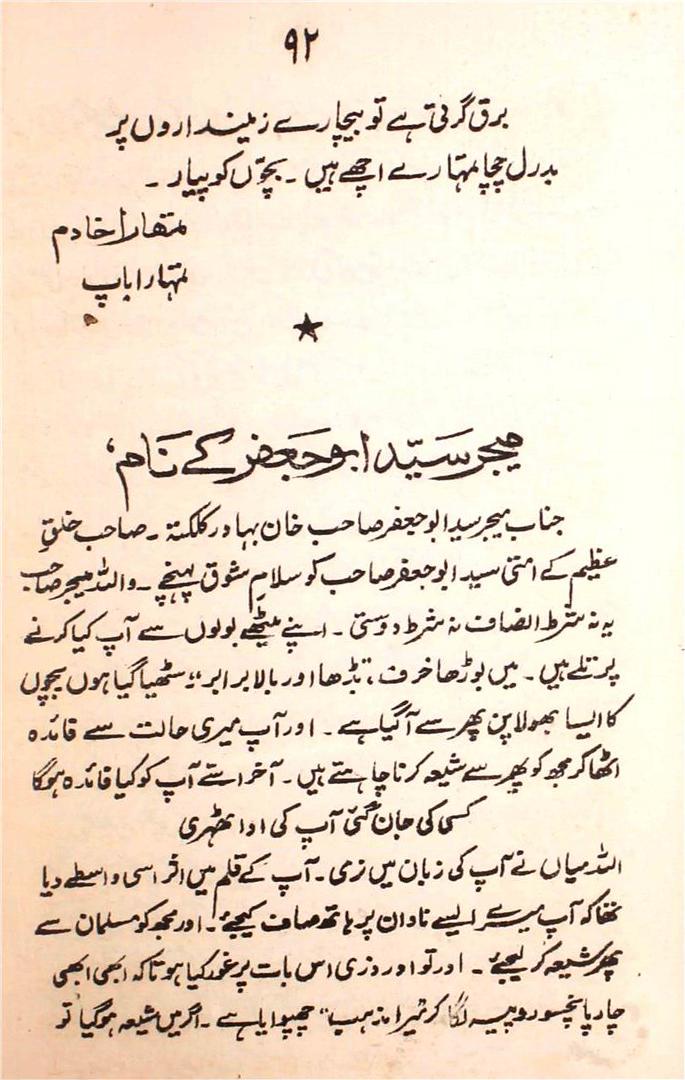 ۹۲
برق گرتی ہے تو بیچارے زمینداروں پر
بدرل چچا تمہارے اچھے ہیں ۔ بچّوں کو پیار ۔
تمھارا خادم
تمہارا باپ
میجر سیّد ابو جعفر کے نام،
جناب میجر سید ابو جعفر صاحب خان بہادر کلکتہ ۔ صاحب خلقِ
عظیم کے امتی سید ابو جعفر صاحب کو سلامِ شوق پہنچے ۔ واللہ میجر صاحب
یہ نہ شرط انصاف نہ شرط دوستی ۔ اپنے میٹھے بولوں سے آپ کیا کرنے
پر تلے ہیں ۔ میں بوڑھا خرف، بڈھا اور بالا برابر ؛ سٹھیا گیا ہوں بچوں
کا ایسا بھولا پن پھر سے آ گیا ہے ۔ اور آپ میری حالت سے فائدہ
اٹھا کر مجھ کو پھر سے شیعہ کرنا چاہتے ہیں ۔ آخر اسے آپ کو کیا فائدہ ہوگا
کسی کی جان گئی آپ کی ادا ٹھہری
اللہ میاں نے آپ کی زبان میں نرمی ۔ آپ کے قلم میں اثر اسی واسطے دیا
تھا کہ آپ میرے ایسے نادان پر ہاتھ صاف کیجئے ۔ اور مجھ کو مسلمان سے
پھر شیعہ کر لیجئے ۔ اور تو اور ذری اس بات پر غور کیا ہوتا کہ ابھی ابھی
چار پانچسو روپیہ لگا کر "میرا مذہب" چھپوایا ہے ۔ اگر میں شیعہ ہو گیا تو